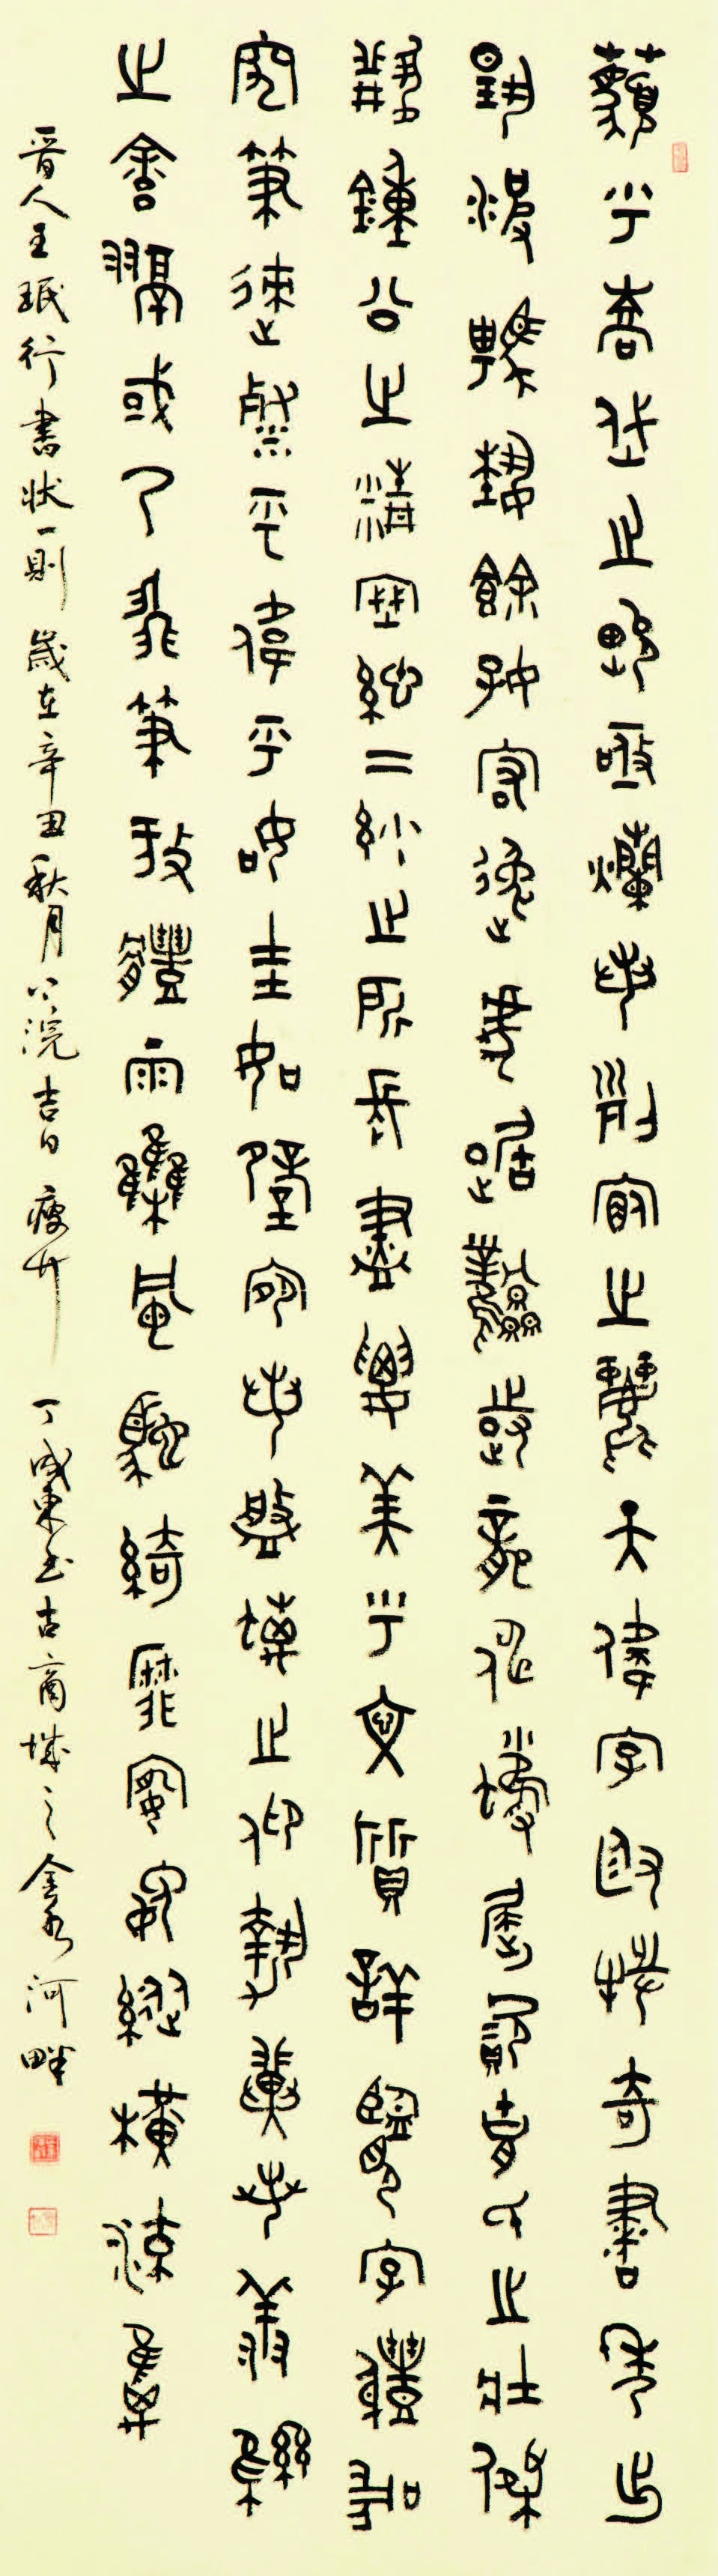 邈乎嵩岱之峻極爛若列宿之麗天偉字既挺奇書秀出
揚波騁藝餘妍宏逸虎踞鳳跱龍伸蠖屈資胡氏之壯傑
兼鍾公之精密總二妙之所長盡眾美乎文質詳覽字體
究筆迹粲乎偉乎如珪如璧宛若盤螭之仰勢翼若翔鸞
之舒翮或乃飛筆放體雨驟風馳綺靡婉娩縱橫流離
晉人王珉行書狀一則 歲在辛丑秋月下浣吉日 瘦竹 丁成東書古商城之金水河畔